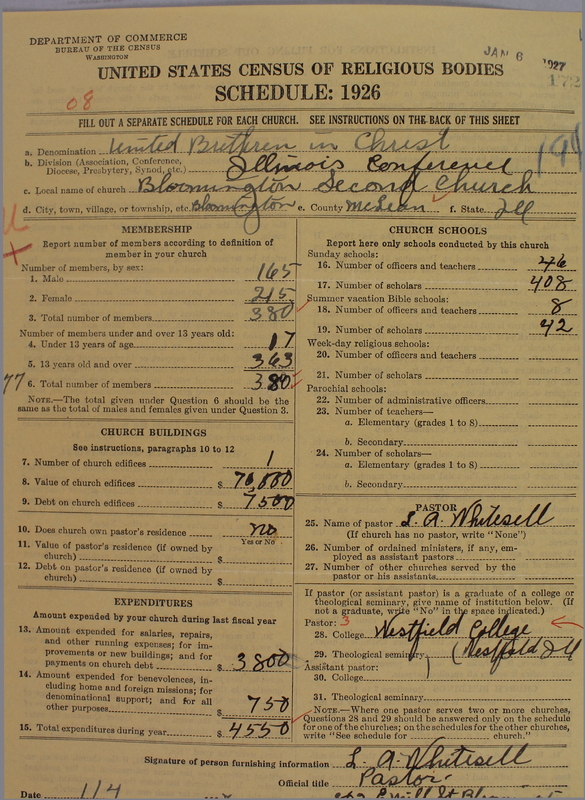 DEPARTMENT OF COMMERCE
BUREAU OF THE CENSUS
WASHINGTON
JAN 6 1927
172
UNITED STATES CENSUS OF RELIGIOUS BODIES
SCHEDULE: 1926
08
FILL OUT A SEPARATE SCHEDULE FOR EACH CHURCH. SEE INSTRUCTIONS ON THE BACK OF THIS SHEET
a. Denomination United Brethren in Christ
b. Division (Association, Conference, Diocese, Presbytery, Synod, etc.) Illinois Conference
c. Local name of church Bloomington Second Church
d. City, town, village, or township, etc. Bloomington e. County McLean f. State Ill
MEMBERSHIP
Report number of members according to definition of
member in your church
Number of members, by sex:
1. Male 165
2. Female 215
3. Total number of members 380
Number of members under and over 13 years old:
4. Under 13 years of age 17
5. 13 years old and over 363
77 6. Total number of members 380
NOTE.—The total given under Question 6 should be
same as the total of males and females given under Question 3.
CHURCH BUILDINGS
See instructions, paragraphs 10 to 12
7. Number of church edifices 1
8. Value of church edifices $ 70,000
9. Debt on church edifices $ 7500
10. Does church own pastor's residence no
Yes or No
11. Value of pastor's residence (if owned by
church) $
12. Debt on pastor's residence (if owned by
church) $
EXPENDITURES
Amount expended by your church during last fiscal year
13. Amount expended for salaries, repairs,
and other running expenses; for im-
provements or new buildings; and for
payments on church debt $ 3800
14. Amount expended for benevolences, in-
cluding home and foreign missions; for
denominational support; and for all
other purposes $ 750
15. Total expenditures during year $ 4550
CHURCH SCHOOLS
Report here only schools conducted by this church
Sunday schools:
16. Number of officers and teachers 46
17. Number of scholars 408
Summer vacation Bible schools:
18. Number of officers and teachers 8
19. Number of scholars 42
Week-day religious schools:
20. Number of officers and teachers
21. Number of scholars
Parochial schools:
22. Number of administrative officers
23. Number of teachers—
a. Elementary (grades 1 to 8)
b. Secondary
24. Number of scholars—
a. Elementary (grades 1 to 8)
b. Secondary
PASTOR
25. Name of pastor L. A. Whitesell
(If church has no pastor, write "None")
26. Number of ordained ministers, if any, em-
ployed as assistant pastors
27. Number of other churches served by the
pastor or his assistants
If pastor (or assistant pastor) is a graduate of a college or
theological seminary, give name of institution below. (If
not a graduate, write "No" in the space indicated.)
Pastor: 3
28. College Westfield College
29. Theological seminary (Westfield Ill
Assistant pastor:
30. College
31. Theological seminary
NOTE.—Where one pastor serves two or more churches,
Questions 28 and 29 should be answered only on the schedule
for one of the churches; on the schedules for the other churches,
write "See schedule for church."
Signature of person furnishing information L. A. Whitesell
Official title Pastor
Date 1/4